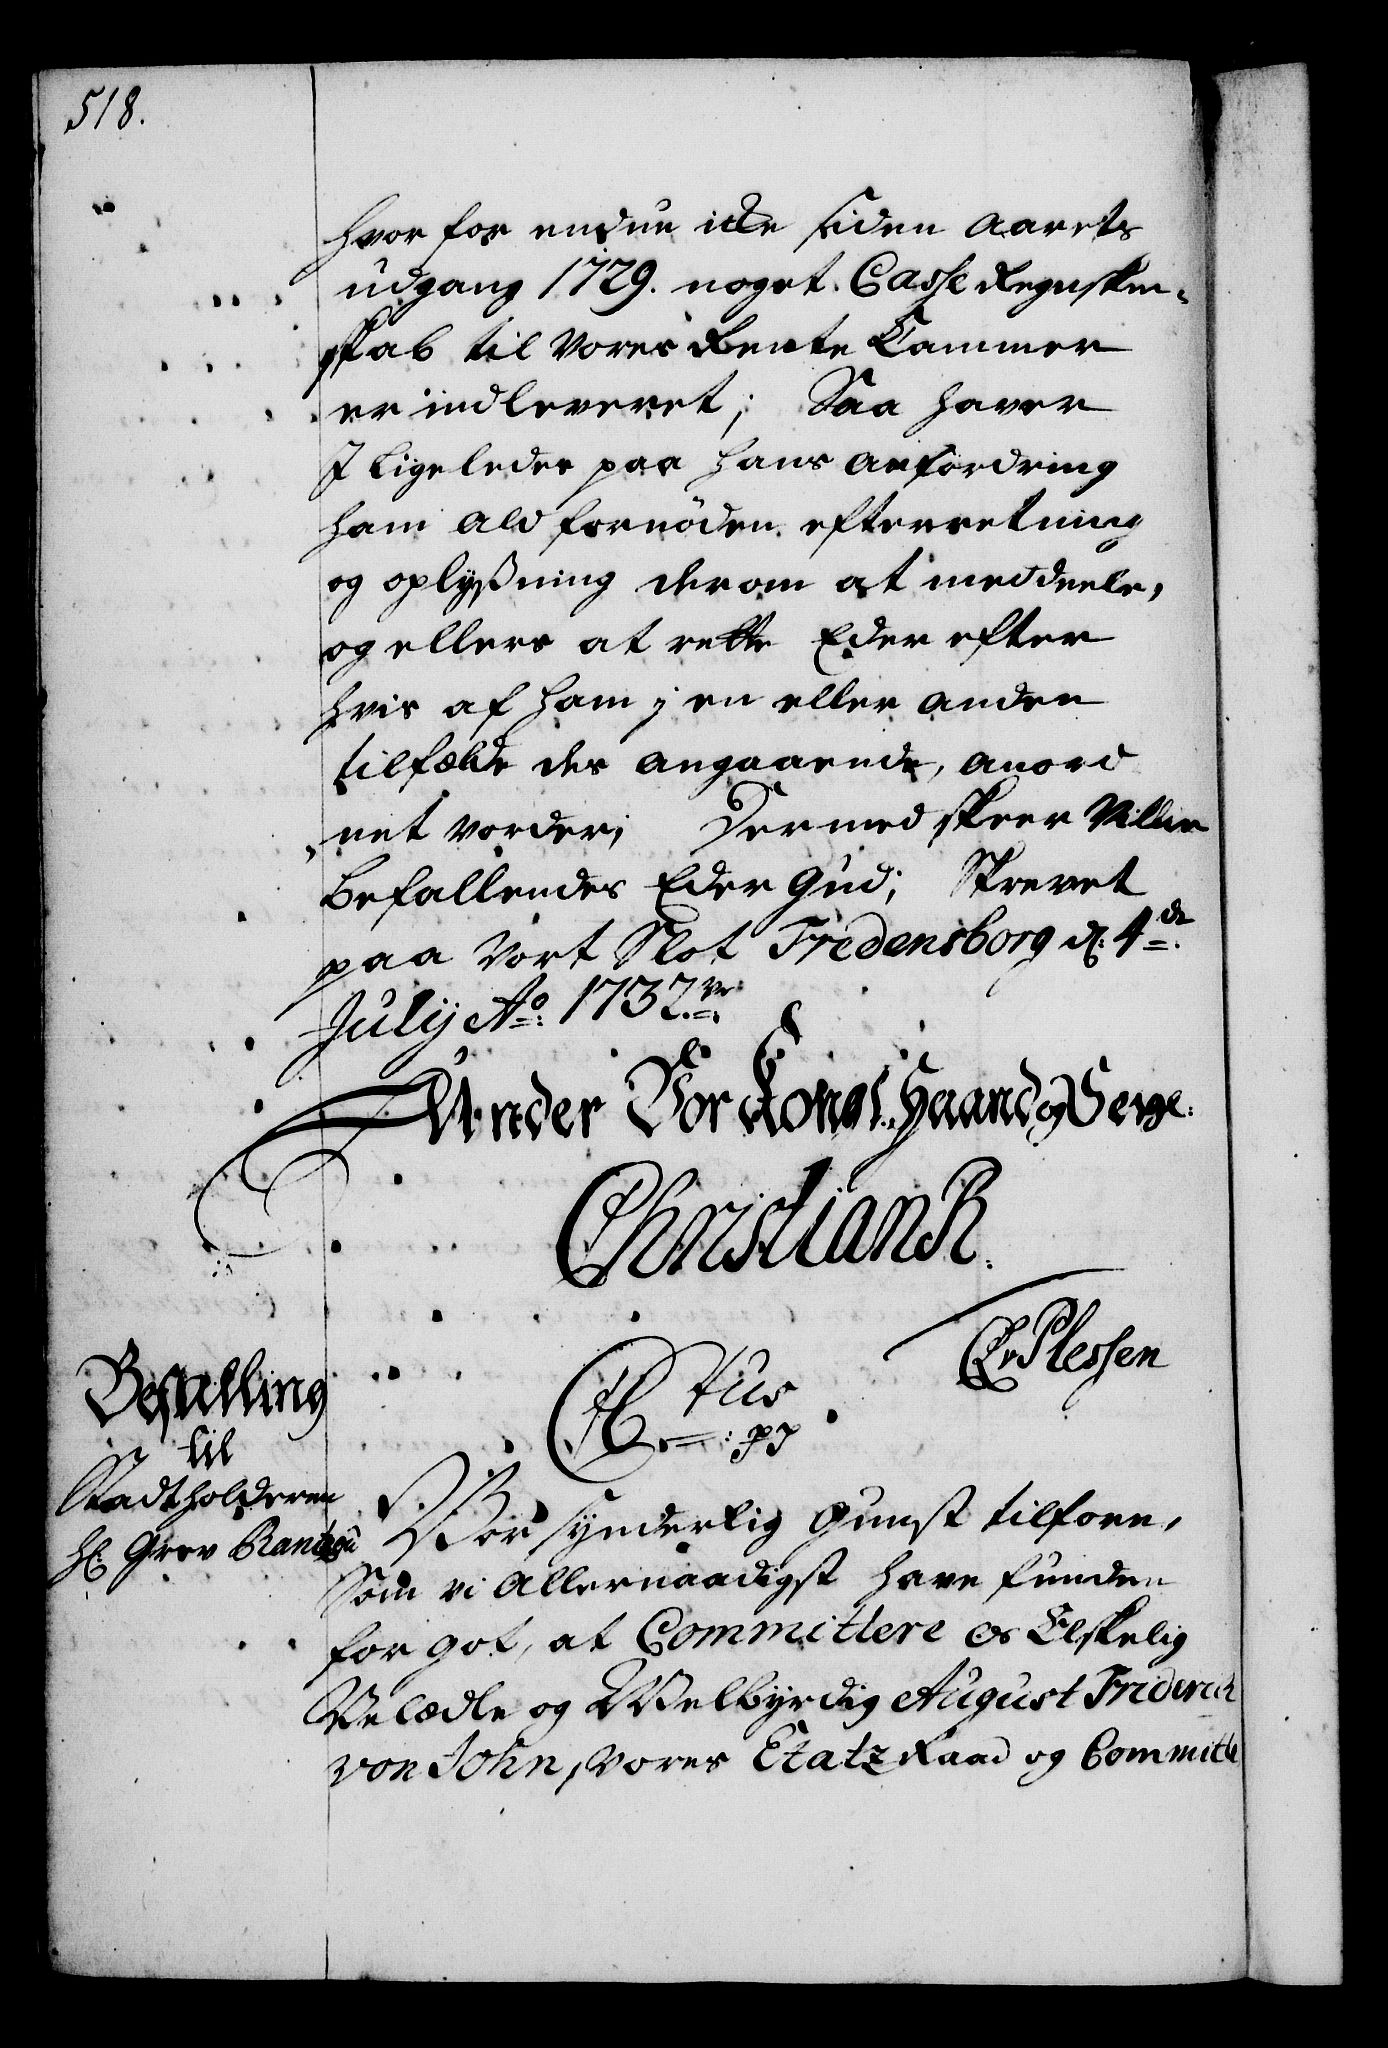 518.
hvor for endnu icke siden Aarets
udgang 1729. noget Casse Regnsken-
skab til Vores Rente Cammer
er indleveret; Saa haver
I ligeledes paa hans anfordring
ham ald fornøden efterretning
og oplysßning derom at meddeele,
og ellers at rette Eder efter
hvis af ham j en eller anden
tilfælde des angaaende, anord
net vorder; Dermed skeer Villie
Befallendes Eder Gud; Skrevet
paa Vort Slot Fredensborg d: 4de
July Ao: 1732.
Under Vor Kongl. Haand og Seigl:
Christian R.
CAvPlessen
Bestilling
til
Stadtholderen
H: Grev Rantzau
C6tus
pp
Vor synderlig Gunst tilforn,
Som vi Allernaadigst have funden
for got, at Committere Os Elskelig
Velædle og Welbyrdig August Friderich
von John, Vores Etatz Raad og Committe